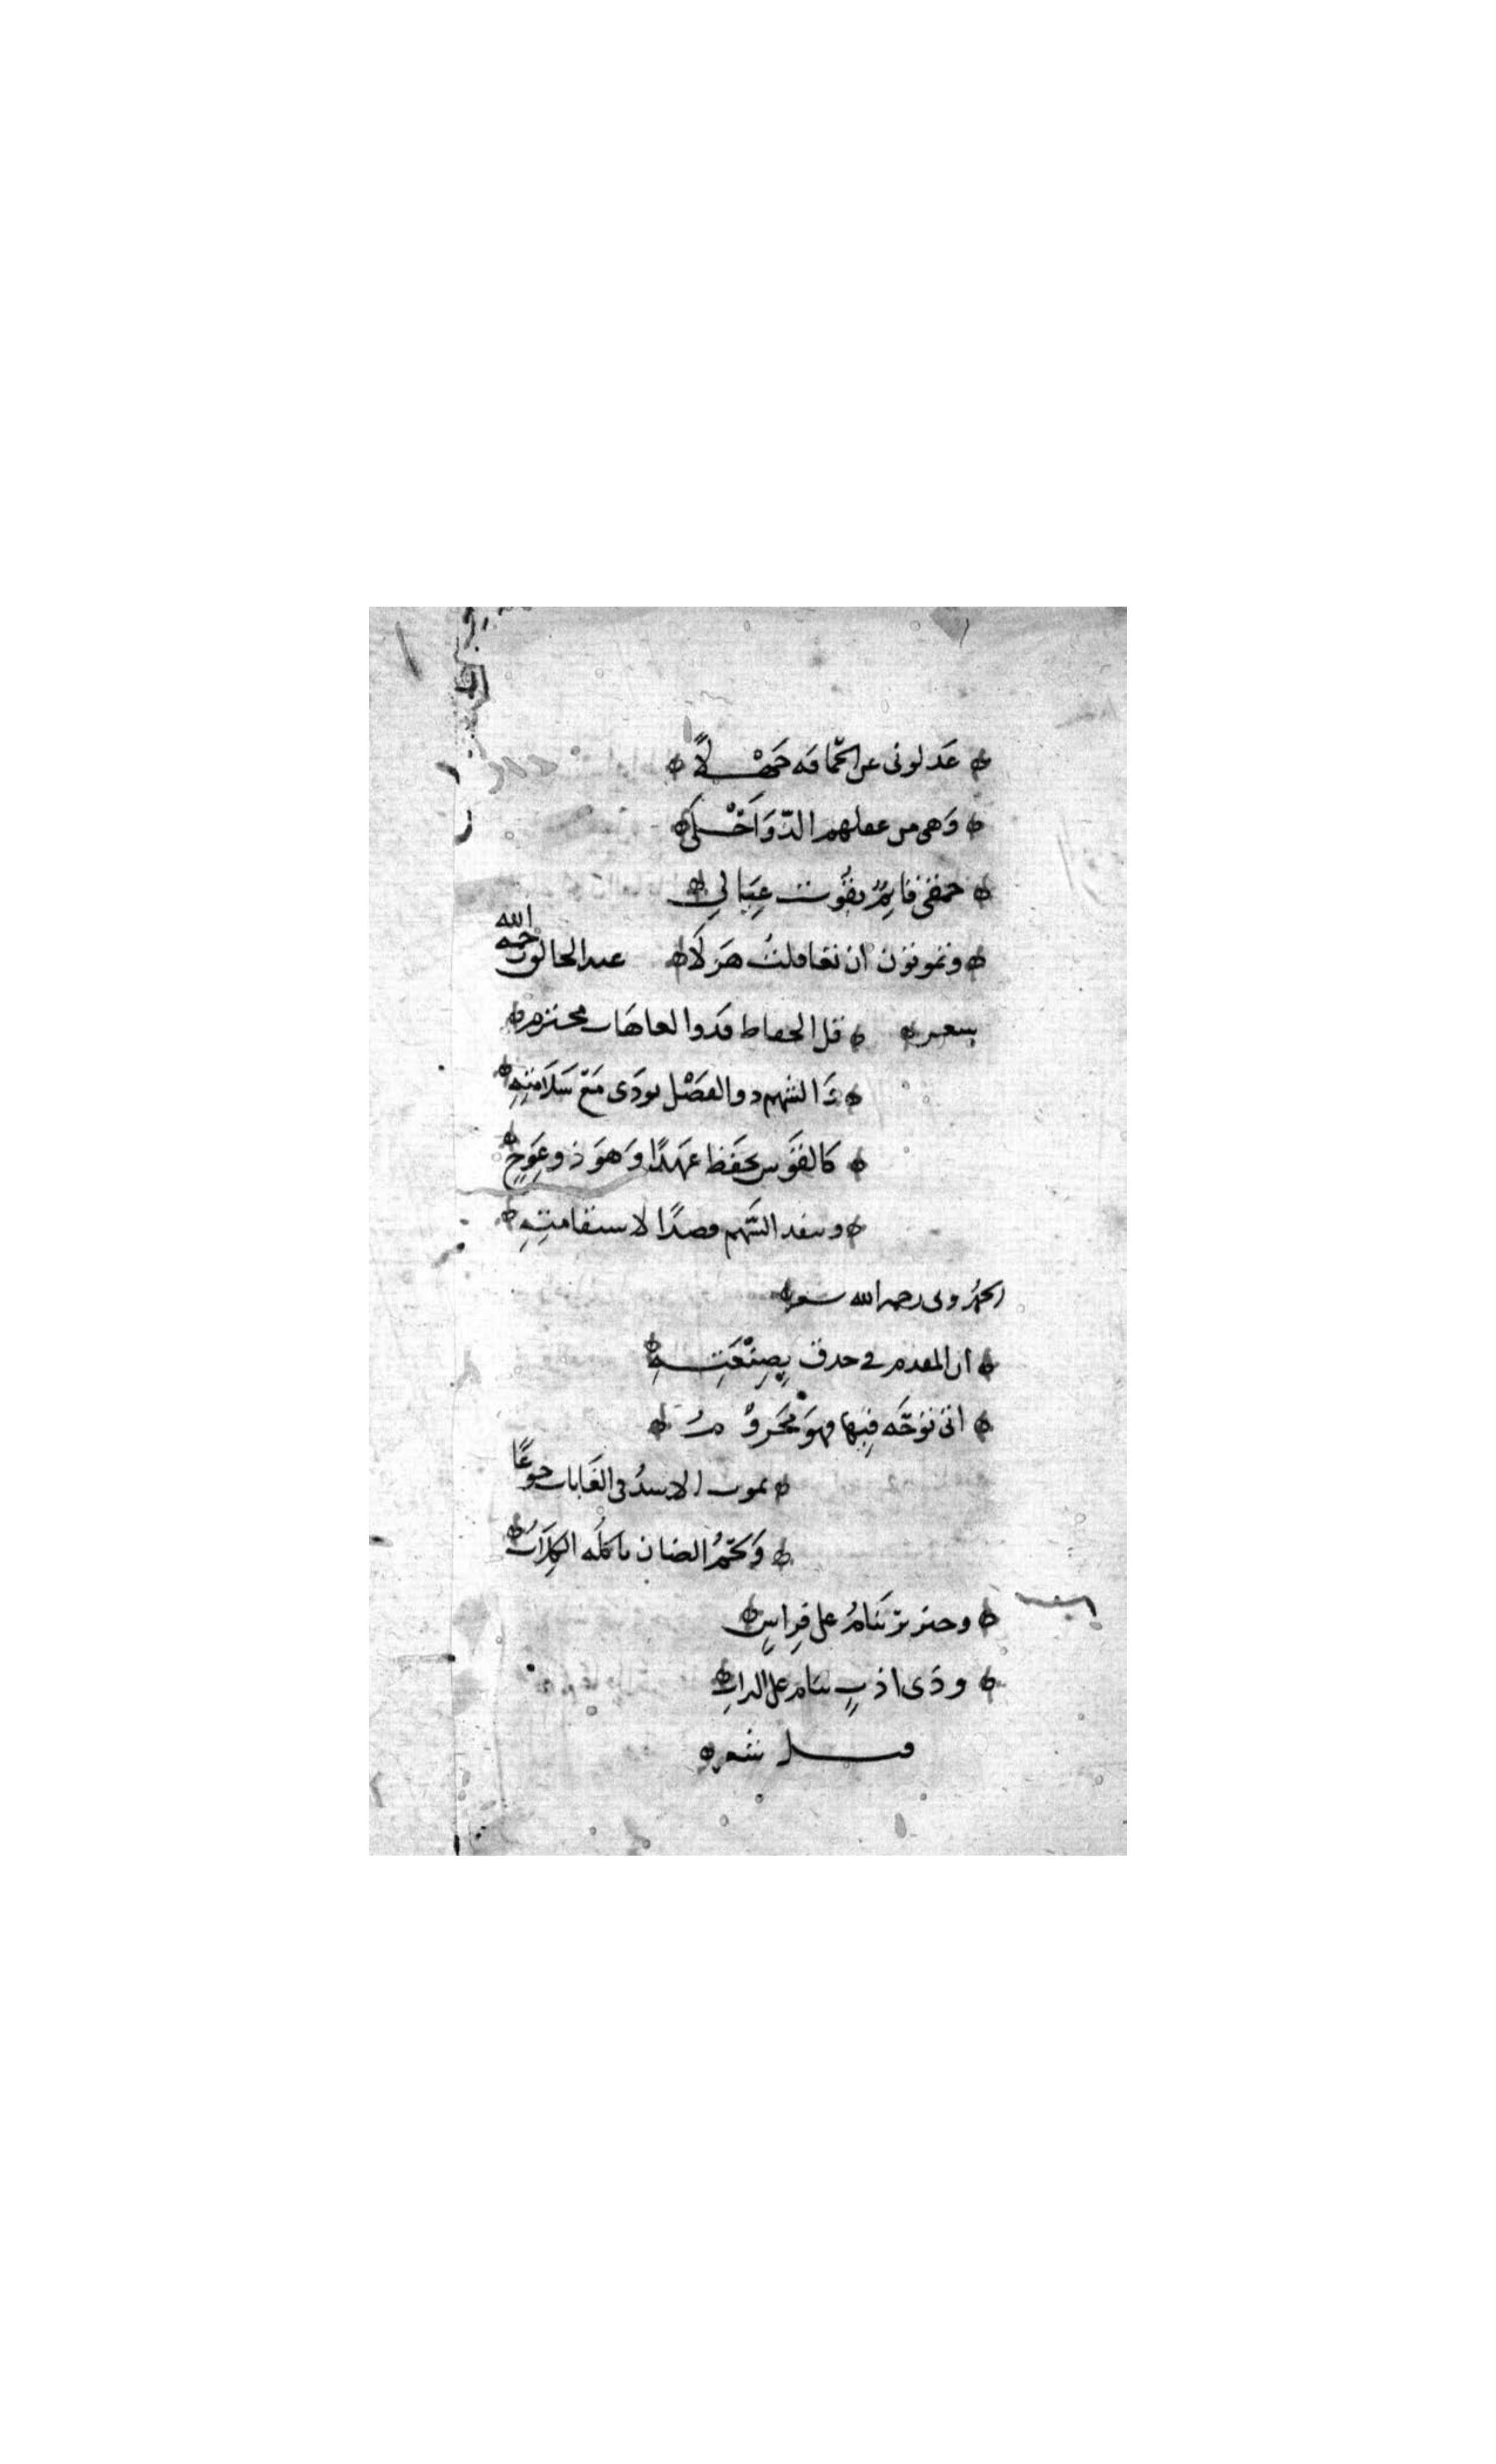 عَدلونى عن الحَمَاقه جَهْلًا
وَهى من عقلهم الذّ وَاَحْلىَ
حمقى قايمٌ بقُوت عِيَالي
ويموتون ان تعاقلتُ هَزلَا عبد الخالق رحمه الله
بسعر قل الحفاظ فذوا لعاهَات محترم
ذَا الشهم ذو الفضْل يودَى مَعَ سَلَامَتِهِ
كَالقَوس يحفَظ عَهدًا وَهوَ ذو عِوَجٍ
وينبذ السَّهم قصدًا لاستقامتِهِ
الحمْدوى رحمه الله شعر
ان المقدم فى حدق بِصِنْعَتِهِ
انى توَجَّه فِيها فهوَ مَحْرومُ
يموت الاسدُ فى الغَابات جوعًا
وَلحمُ الضان تاكلُه الكِلَابُ
وخنزيرٌ يَنَامُ على فِراشٍ
وذى ادبٍ ينام على التراب
قيل شعر